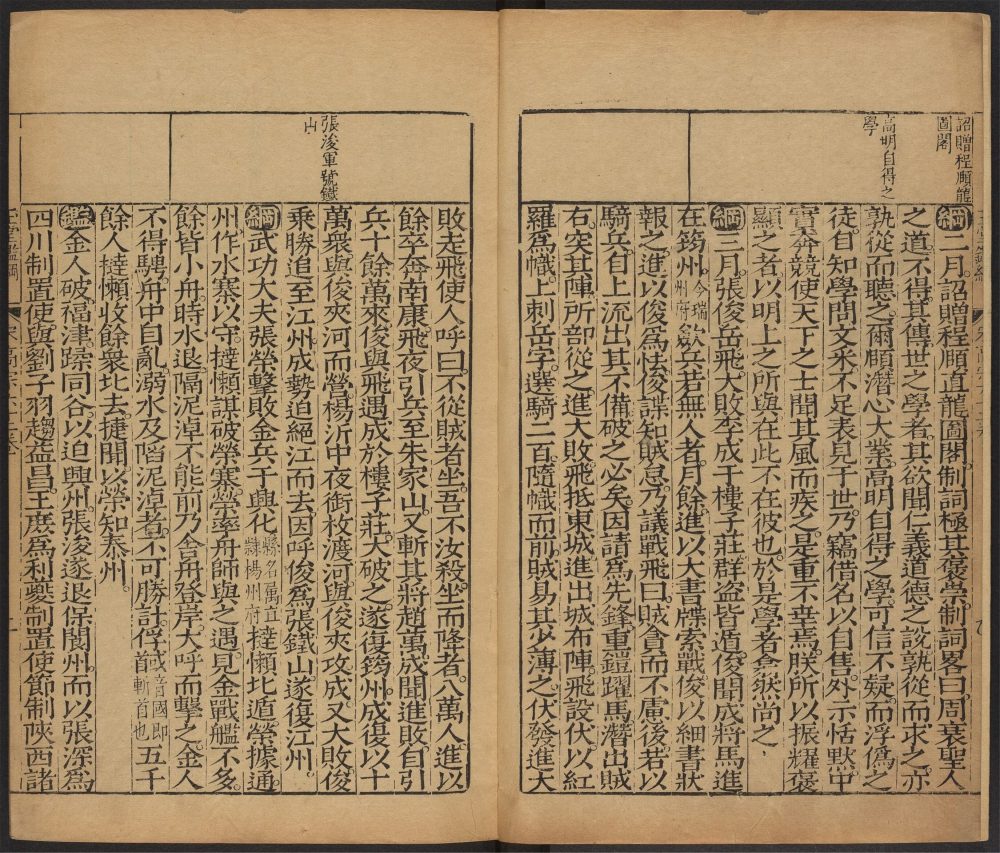 詔贈程頤龍
圖閣
高明自得之
學
綱二月詔贈程頤直龍圖閣制詞極其褒學制詞畧曰周衰聖人
之道不得其傳世之學者其欲聞仁義道德之說孰從而求之亦
孰從而聽之爾頤潛心大業高明自得之學可信不疑而浮僞之
徒自知學問文采不足表見于世乃竊借名以自售外示恬默中
實奔競使天下之士聞其風而疾之是重不幸焉朕所以振耀褒
顯之者以明上之所與在此不在彼也於是學者翕然尚之
綱三月張俊岳飛大敗李成于樓子莊群盜皆遁俊聞成將馬進
在筠州今瑞州府歛兵若無人者月餘進以大書牒索戰俊以細書狀
報之進以俊爲怯俊諜知賊怠乃議戰飛曰賊貪而不慮後若以
騎兵自上流出其不備破之必矣因請爲先鋒重鎧躍馬潛出賊
右突其陣所部從之進大敗飛抵東城進出城布陣飛設伏以紅
羅爲幟上刺岳字選騎二百隨幟而前賊易其少薄之伏發進大
張浚軍號鐵
山
敗走飛使人呼曰不從賊者坐吾不汝殺坐而降者八萬人進以
餘卒奔南康飛夜引兵至朱家山又斬其將趙萬成聞進敗自引
兵十餘萬來俊與飛遇成於樓子莊大破之遂復筠州成復以十
萬衆與俊夾河而營楊沂中夜銜枚渡河與俊夾攻成又大敗俊
乘勝追至江州成勢迫絕江而去因呼俊爲張鐵山遂復江州
綱武功大夫張榮擊敗金兵于興化縣名屬直隸楊州府撻懶北遁榮據通
州作水寨以守撻懶謀破榮寨榮率舟師與之遇見金戰艦不多
餘皆小舟時水退隔泥淖不能前乃舍舟登岸大呼而擊之金人
不得騁舟中自亂溺水及陷泥淖者不可勝計俘馘音國即首斬首也五千
餘人撻懶收餘衆北去捷聞以榮知泰州
鑑金人破福津蹂同谷以迫興州張浚遂退保閬州而以張深爲
四川制置使與劉子羽趨益昌王庶爲利夔制置使節制陝西諸